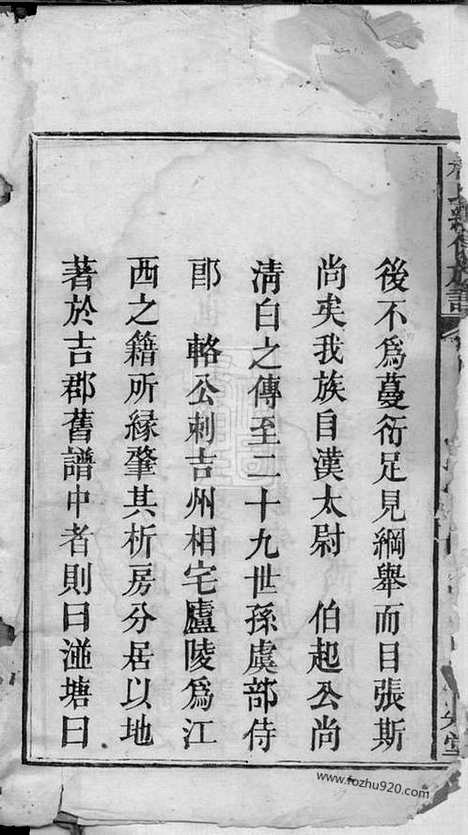 後不爲蔓衍足見綱舉而目張斯
尚矣我族自漢太尉 伯起公尚
清白之傳至二十九世孫虞部侍
郎 輅公刺吉州相宅廬陵爲江
西之籍所緣肇其析房分居以地
著於吉郡舊譜中者則曰湴塘曰
www.fozhu920.com